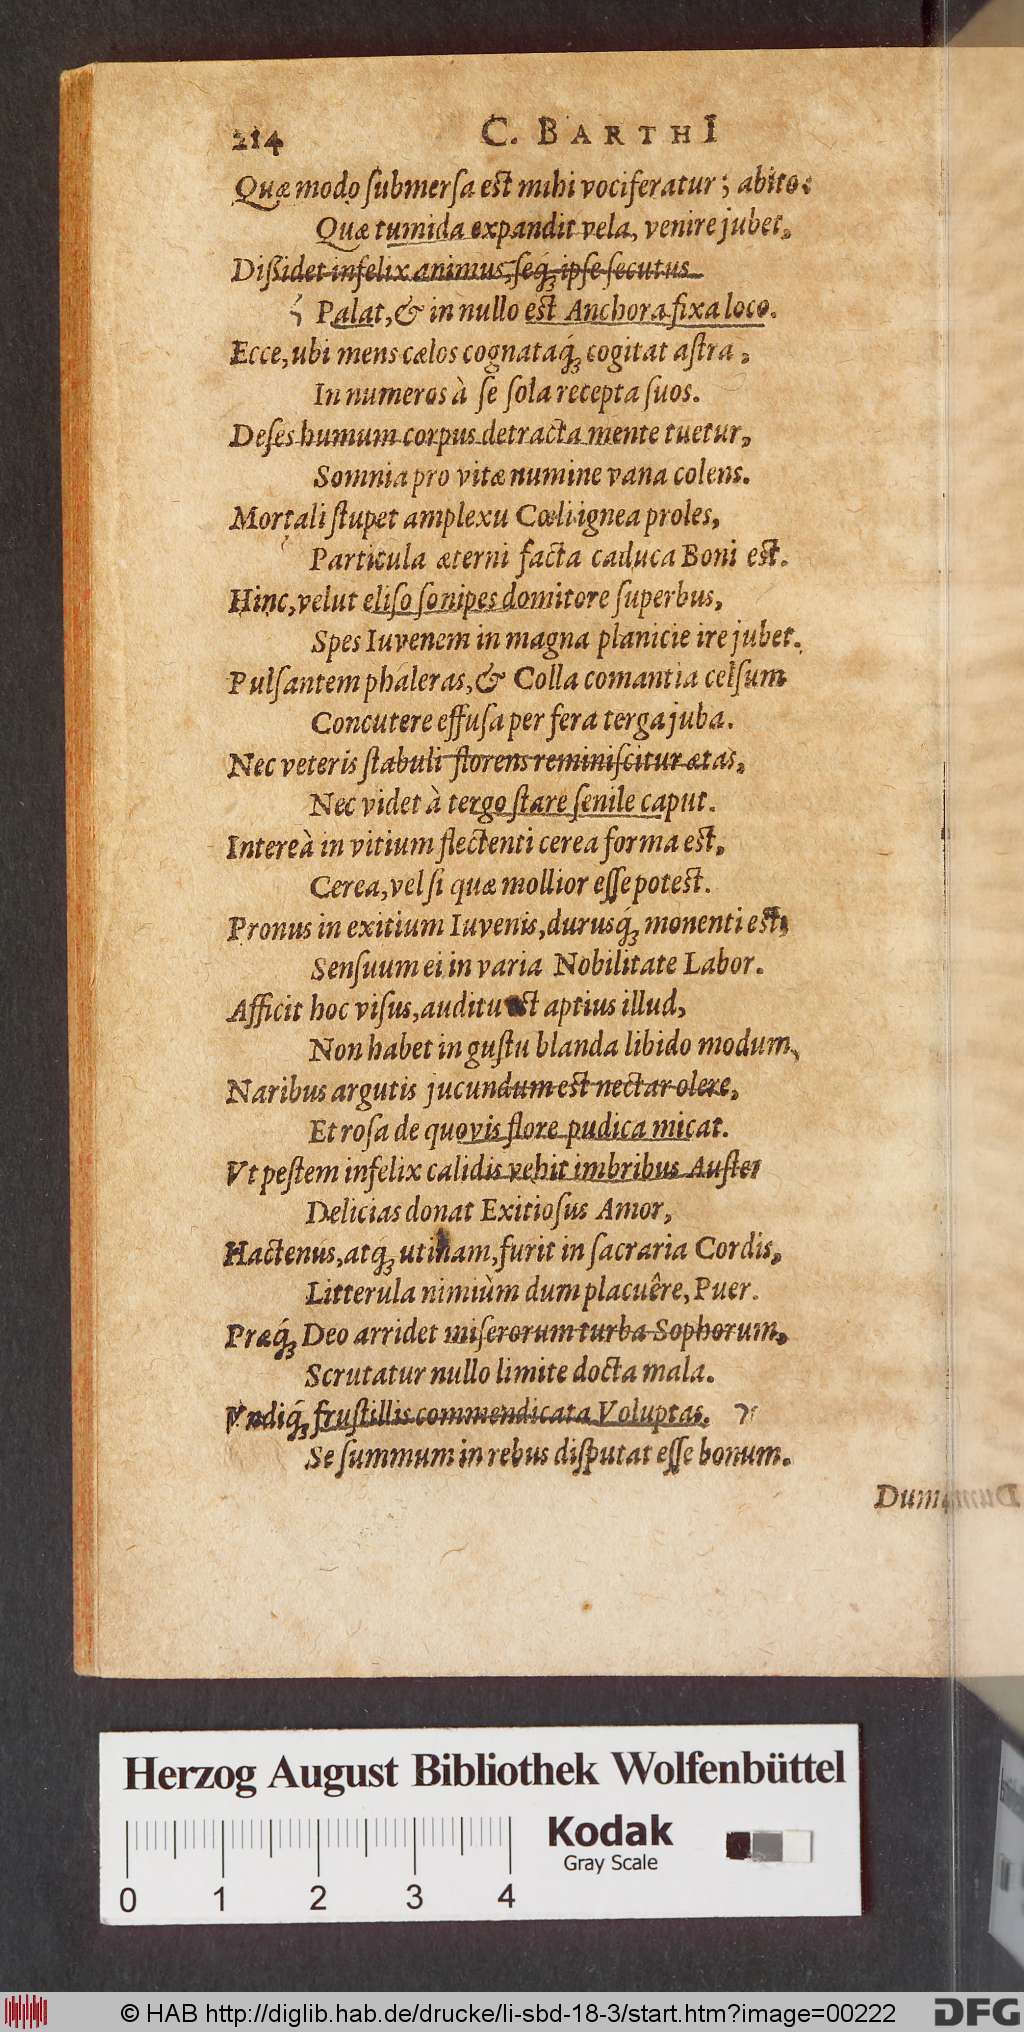 214 C. BARTHI
Quæ modo submersa est mihi vociferatur; abito:
Quæ tumida expandit vela, venire jubet.
Dißidet infelix animus, seq́; ipse secutus
Palat, & in nullo est Anchora fixa loco.
Ecce, ubi mens cælos cognataq́; cogitat astra,
In numeros à se sola recepta suos.
Deses humum corpus detracta mente tuetur,
Somnia pro vitæ numine vana colens.
Mortali stupet amplexu Cœli ignea proles,
Particula æterni facta caduca Boni est.
Hinc, velut eliso sonipes domitore superbus,
Spes Iuvenem in magna planicie ire jubet.
Pulsantem phaleras, & Colla comantia celsum
Concutere effusa per fera terga juba.
Nec veteris stabuli florens reminiscitur ætas,
Nec videt à tergo stare senile caput.
Intereà in vitium flectenti cerea forma est,
Cerea, vel si quæ mollior esse potest.
Pronus in exitium Iuvenis, durusq́; monenti est,
Sensuum ei in varia Nobilitate Labor.
Afficit hoc visus, auditu est aptius illud,
Non habet in gustu blanda libido modum,
Naribus argutis jucundum est nectar olere,
Et rosa de quovis flore pudica micat.
Vt pestem infelix calidis vehit imbribus Auster
Delicias donat Exitiosus Amor,
Hactenus, atq́; utinam, furit in sacraria Cordis,
Litterula nimiùm dum placuêre, Puer.
Præq́; Deo arridet miserorum turba Sophorum,
Scrutatur nullo limite docta mala.
Vndiq́; frustillis commendicata Voluptas.
Se summum in rebus disputat esse bonum.
Dum
Herzog August Bibliothek Wolfenbüttel
Kodak
Gray Scale
0 1 2 3 4
© HAB http://diglib.hab.de/drucke/li-sbd-18-3/start.htm?image=00222
DFG